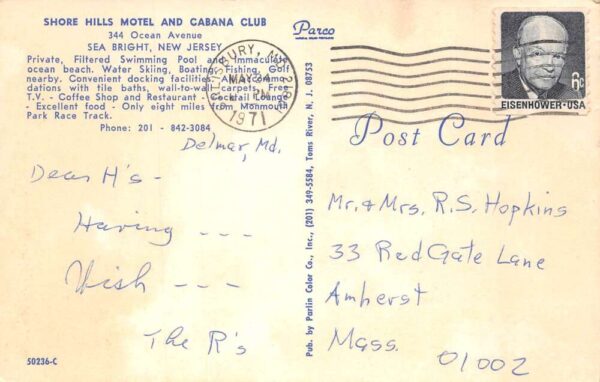 SHORE HILLS MOTEL AND CABANA CLUB
344 Ocean Avenue
SEA BRIGHT, NEW JERSEY
Private, Filtered Swimming Pool and Immaculate
ocean beach. Water Skiing, Boating, Fishing, Golf
nearby. Convenient docking facilities. Accommo-
dations with tile baths, wall-to-wall carpets, Free
T.V. - Coffee Shop and Restaurant - Cocktail Lounge
- Excellent food - Only eight miles from Monmouth
Park Race Track.
Phone: 201 - 842-3084
Parco
SALISBURY, MD. 218
MAY 24
PM
1971
6c
EISENHOWER·USA
Post Card
Delmar, Md.
Dear H's -
Having ---
Wish ---
The R's
Mr. & Mrs. R.S. Hopkins
33 Red Gate Lane
Amherst
Mass.
01002
Pub. by Parlin Color Co., Inc., (201) 349-5584, Toms River, N. J. 08753
50236-C